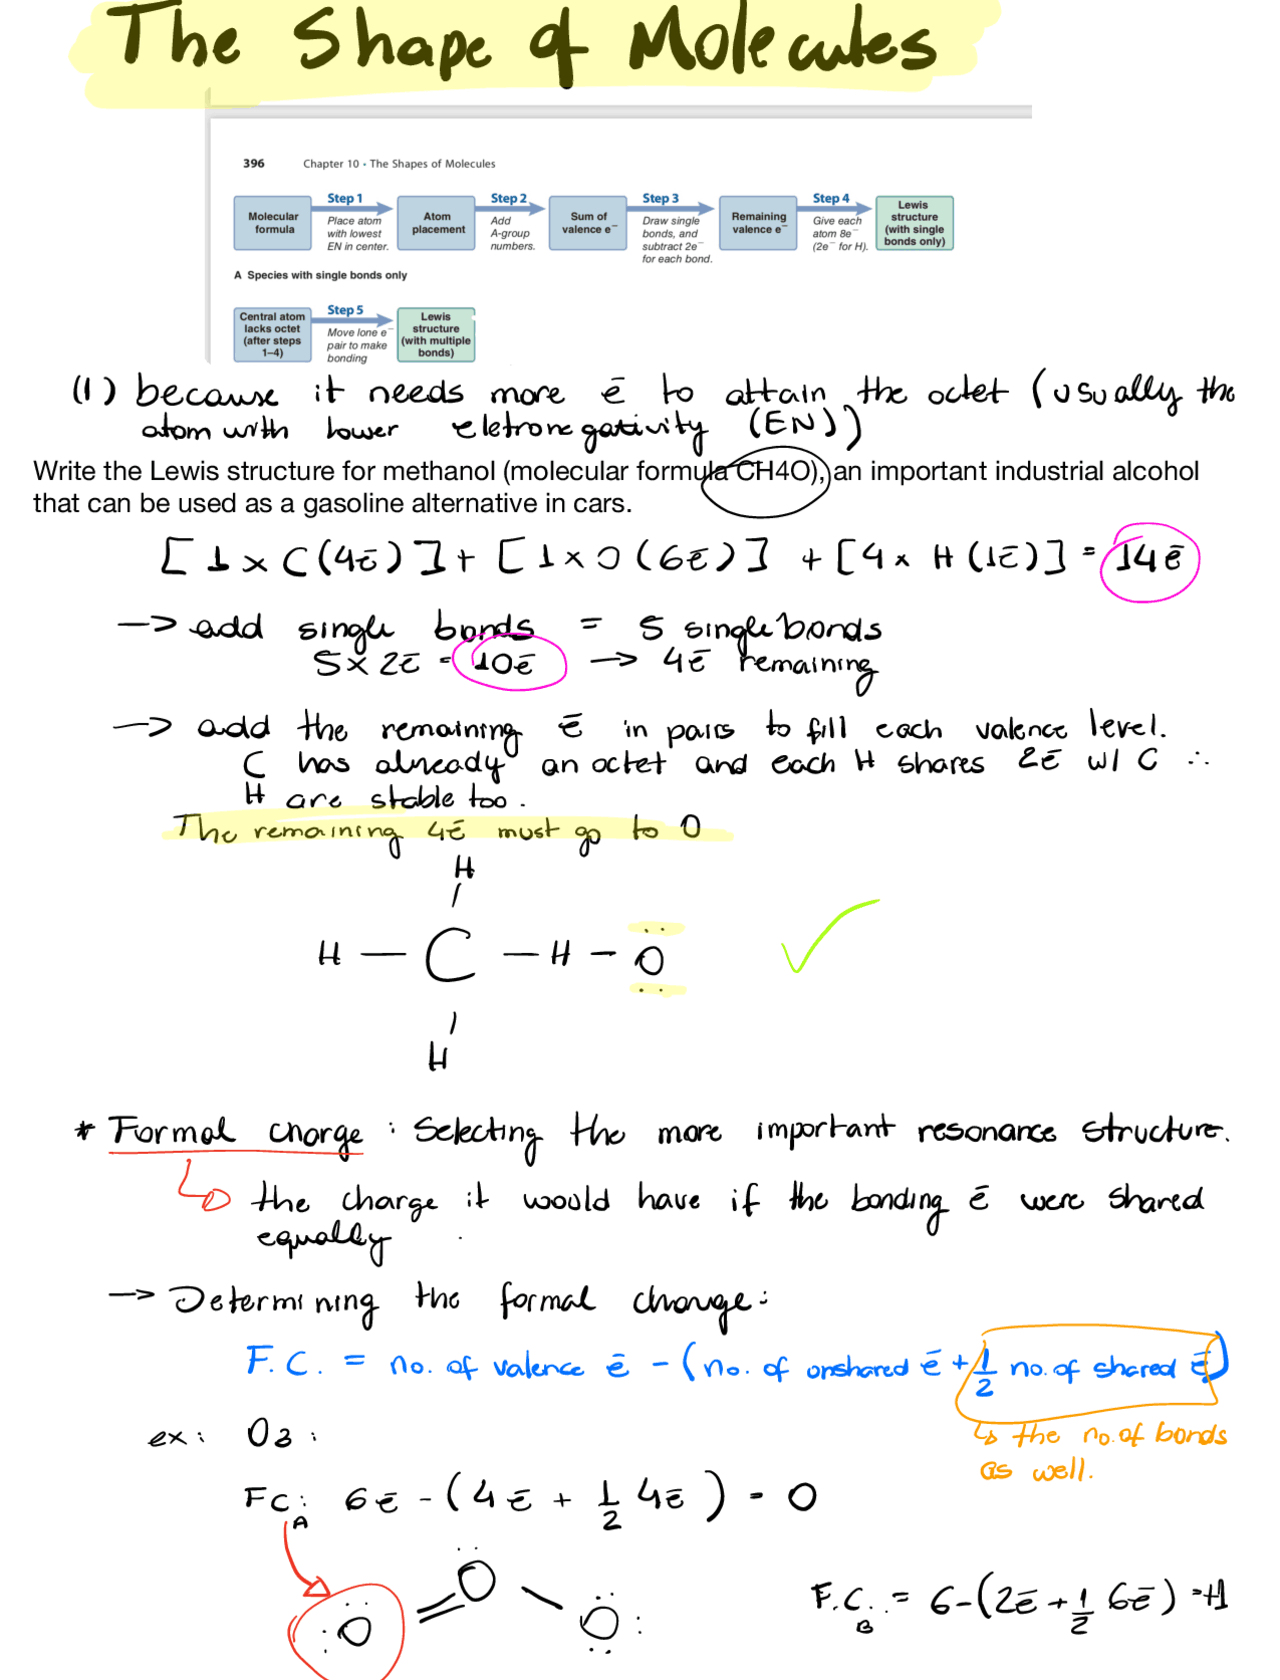 The Shape of Molecules
396 Chapter 10 • The Shapes of Molecules
Molecular formula
Step 1
Place atom with lowest EN in center.
Atom placement
Step 2
Add A-group numbers.
Sum of valence e⁻
Step 3
Draw single bonds, and subtract 2e⁻ for each bond.
Remaining valence e⁻
Step 4
Give each atom 8e⁻ (2e⁻ for H).
Lewis structure (with single bonds only)
A Species with single bonds only
Central atom lacks octet (after steps 1–4)
Step 5
Move lone e⁻ pair to make bonding
Lewis structure (with multiple bonds)
(1) because it needs more ē to attain the octet (usually the
atom with lower eletronegativity (EN))
Write the Lewis structure for methanol (molecular formula CH4O), an important industrial alcohol
that can be used as a gasoline alternative in cars.
[1 x C(4ē)] + [1 x O(6ē)] + [4 x H(1ē)] = 14ē
→ add single bonds = 5 single bonds
5 x 2ē = 10ē → 4ē remaining
→ add the remaining ē in pairs to fill each valence level.
C has already an octet and each H shares 2ē w/ C ∴
H are stable too.
The remaining 4ē must go to O
H
H — C — H — O
H
* Formal charge : Selecting the more important resonance structure.
the charge it would have if the bonding ē were shared
equally
→ Determining the formal charge:
F.C. = no. of valence ē - (no. of onshared ē + 1/2 no. of shared ē)
↳ the no. of bonds
as well.
ex: O3 :
FC:A 6ē - (4ē + 1/2 4ē) = 0
O = O — O
F.C.B = 6-(2ē + 1/2 6ē) = +1